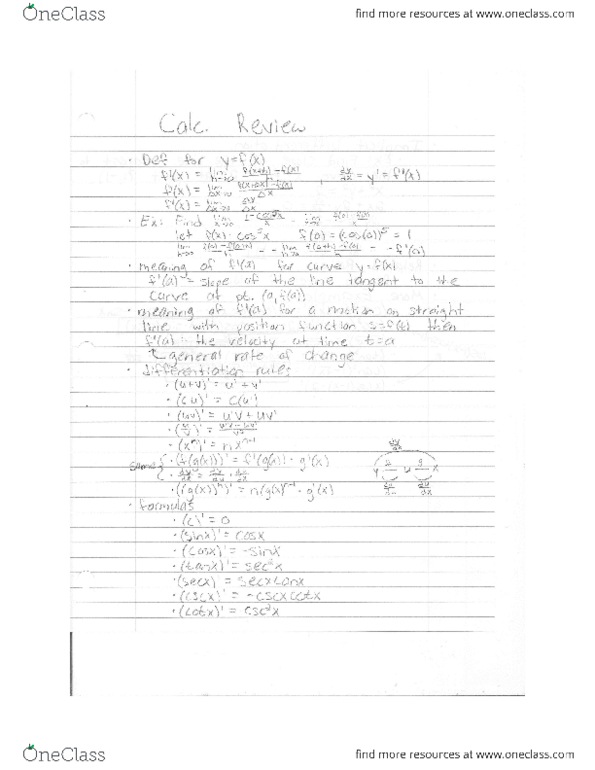 OneClass
find more resources at www.oneclass.com
Calc. Review
· Def for y=f(x)
f'(x) = lim h→0 f(x+h)-f(x)/h , dy/dx = y' = f'(x)
f'(x) = lim Δx→0 f(x+Δx)-f(x)/Δx
f'(x) = lim Δx→0 Δy/Δx
· Ex: Find lim x→0 1-cos⁵x/x = lim x→0 f(0)-f(x)/x
let f(x)=cos⁵x f(0)=(cos(0))⁵=1
· meaning of f'(x) for curve y=f(x)
f'(a) = slope of the line tangent to the
curve at pt. (a, f(a))
· meaning of f'(a) for a motion on straight
line with position function s=f(t) then
f'(a) = the velocity at time t=a
general rate of change
· differentiation rules
· (u+v)' = u' + v'
· (cu)' = c(u')
· (uv)' = u'v + uv'
· (u/v)' = u'v - uv'/v²
· (xⁿ)' = nxⁿ⁻¹
· (f(g(x)))' = f'(g(x)) · g'(x)
· dy/dx = dy/du · du/dx
· ((g(x))ⁿ)' = n(g(x))ⁿ⁻¹ · g'(x)
dy/dx
y u g x
dy/du du/dx
· formulas
· (c)' = 0
· (sinx)' = cosx
· (cosx)' = -sinx
· (tanx)' = sec²x
· (secx)' = secxtanx
· (cscx)' = -cscxcotx
· (cotx)' = csc²x
OneClass
find more resources at www.oneclass.com